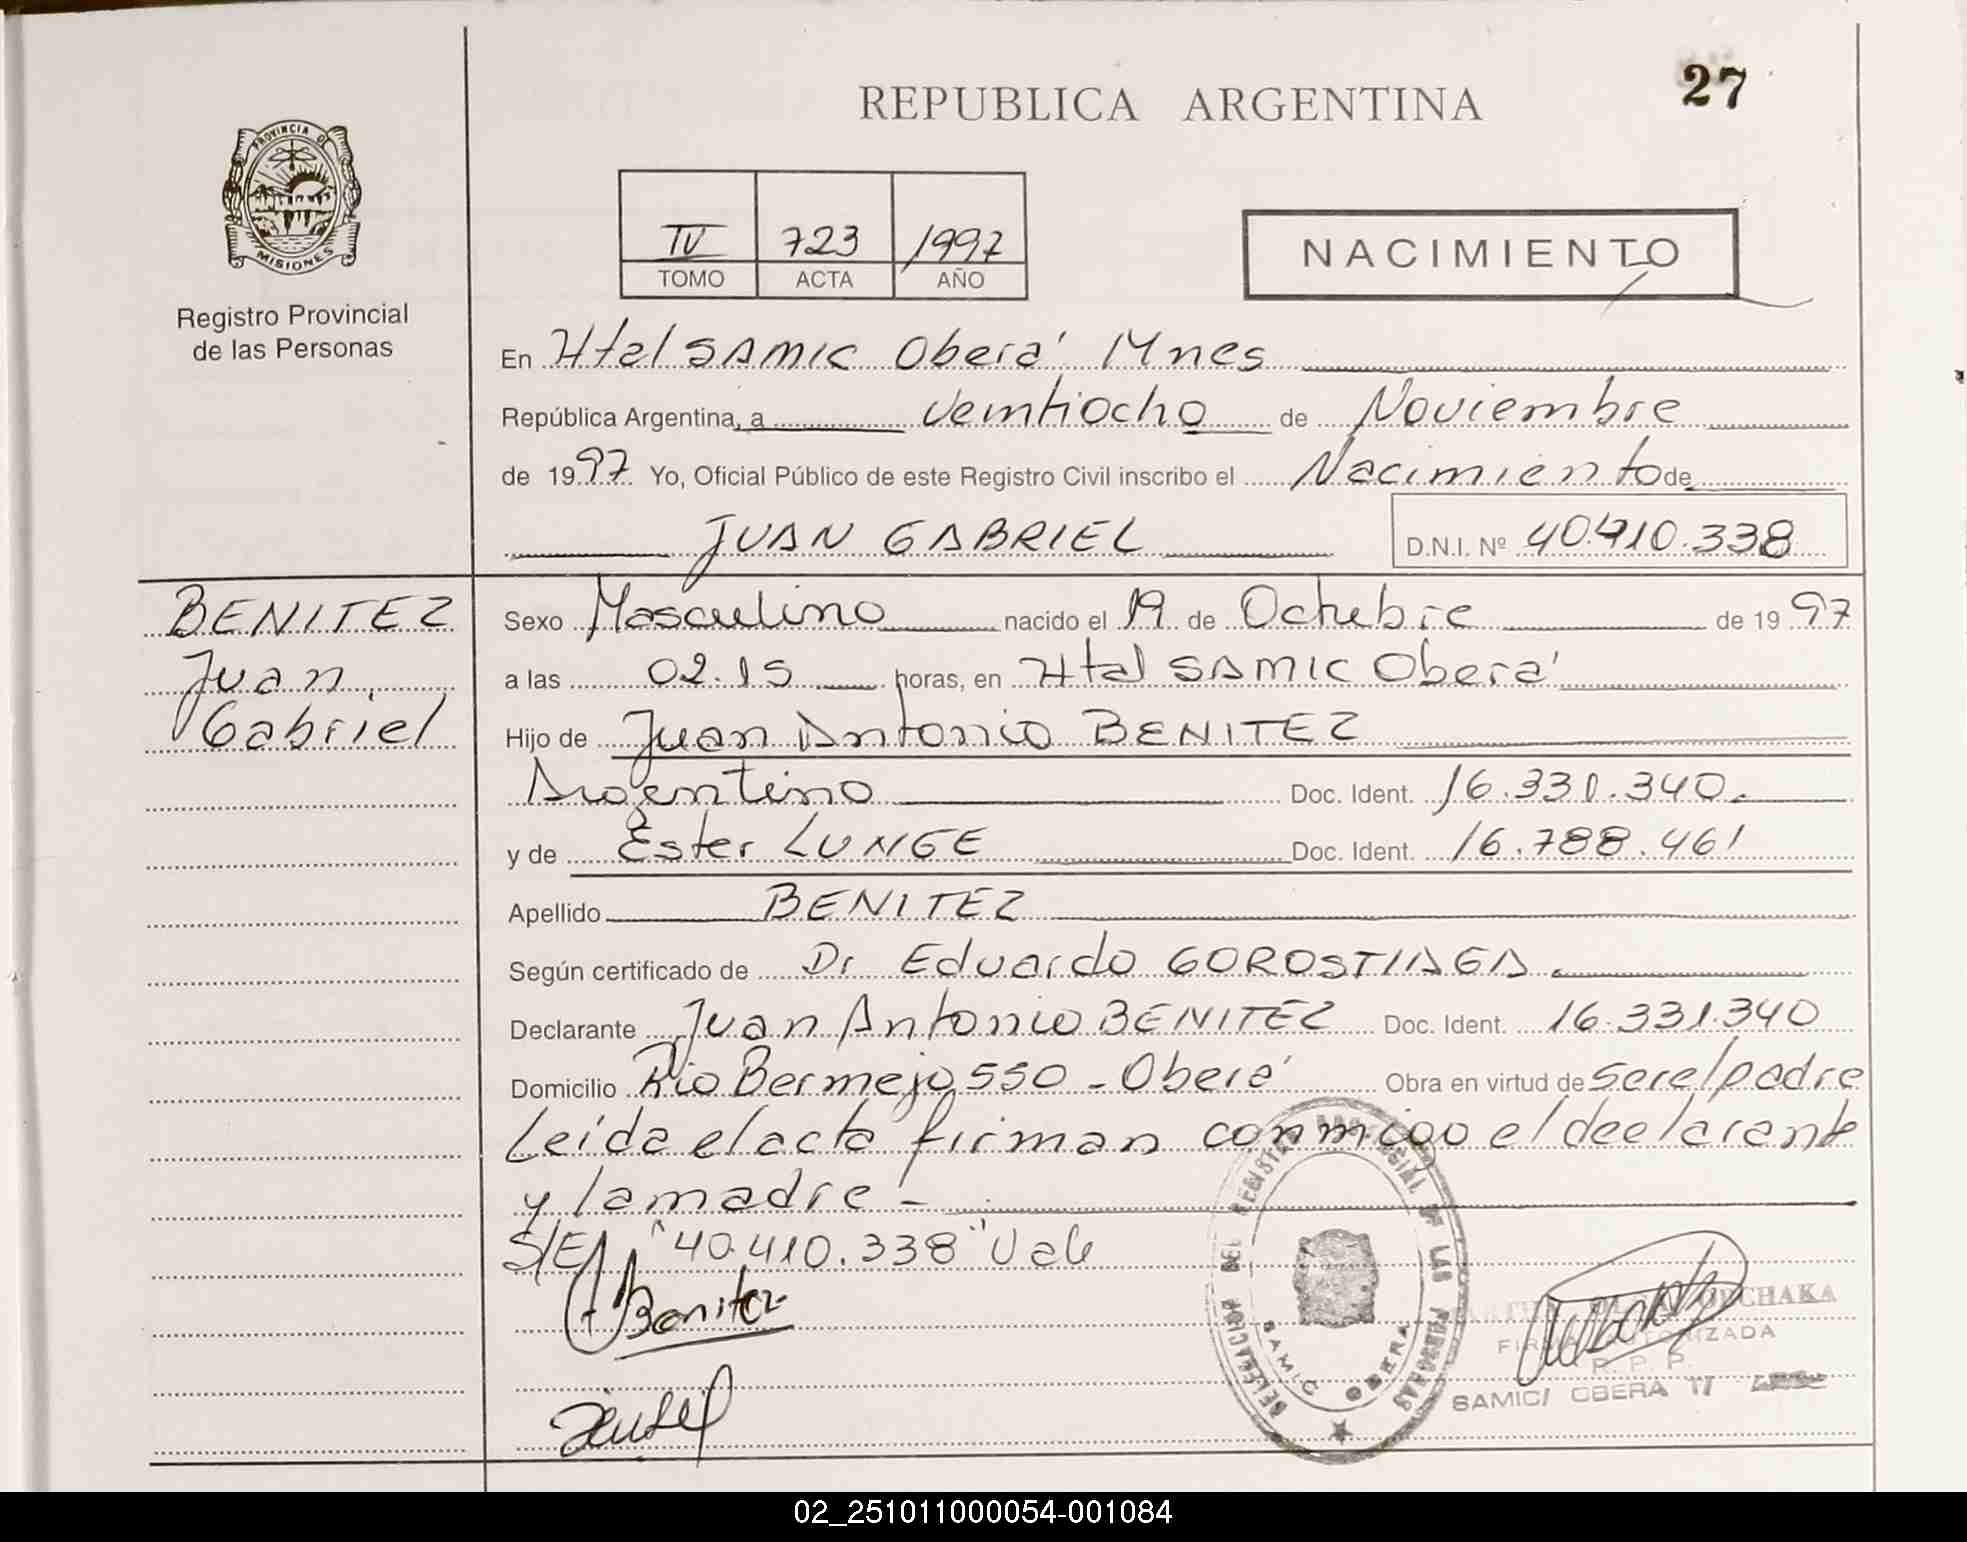 27
REPUBLICA ARGENTINA
PROVINCIA DE
MISIONES
Registro Provincial
de las Personas
IV 723 1997
TOMO ACTA AÑO
NACIMIENTO
En Htal SAMIC Oberá Mnes
República Argentina, a Veintiocho de Noviembre
de 1997 Yo, Oficial Público de este Registro Civil inscribo el Nacimiento de
JUAN GABRIEL D.N.I. Nº 40.410.338
BENITEZ
Juan
Gabriel
Sexo Masculino nacido el 19 de Octubre de 1997
a las 02.15 horas, en Htal SAMIC Oberá
Hijo de Juan Antonio BENITEZ
Argentino Doc. Ident. 16.331.340.
y de Ester LUNGE Doc. Ident. 16.788.461
Apellido BENITEZ
Según certificado de Dr Eduardo GOROSTIAGA.
Declarante Juan Antonio BENITEZ Doc. Ident. 16.331.340
Domicilio Rio Bermejo 550 - Oberá Obra en virtud de ser el padre
Leída el acta firman conmigo el declarante
y la madre -
S/E/ "40.410.338" Vale
Benitez
DELEGACION DEL REGISTRO PROVINCIAL DE LAS PERSONAS
SAMIC OBERA
FIRMA AUTORIZADA
R. P. P.
SAMIC/ OBERA
02_251011000054-001084